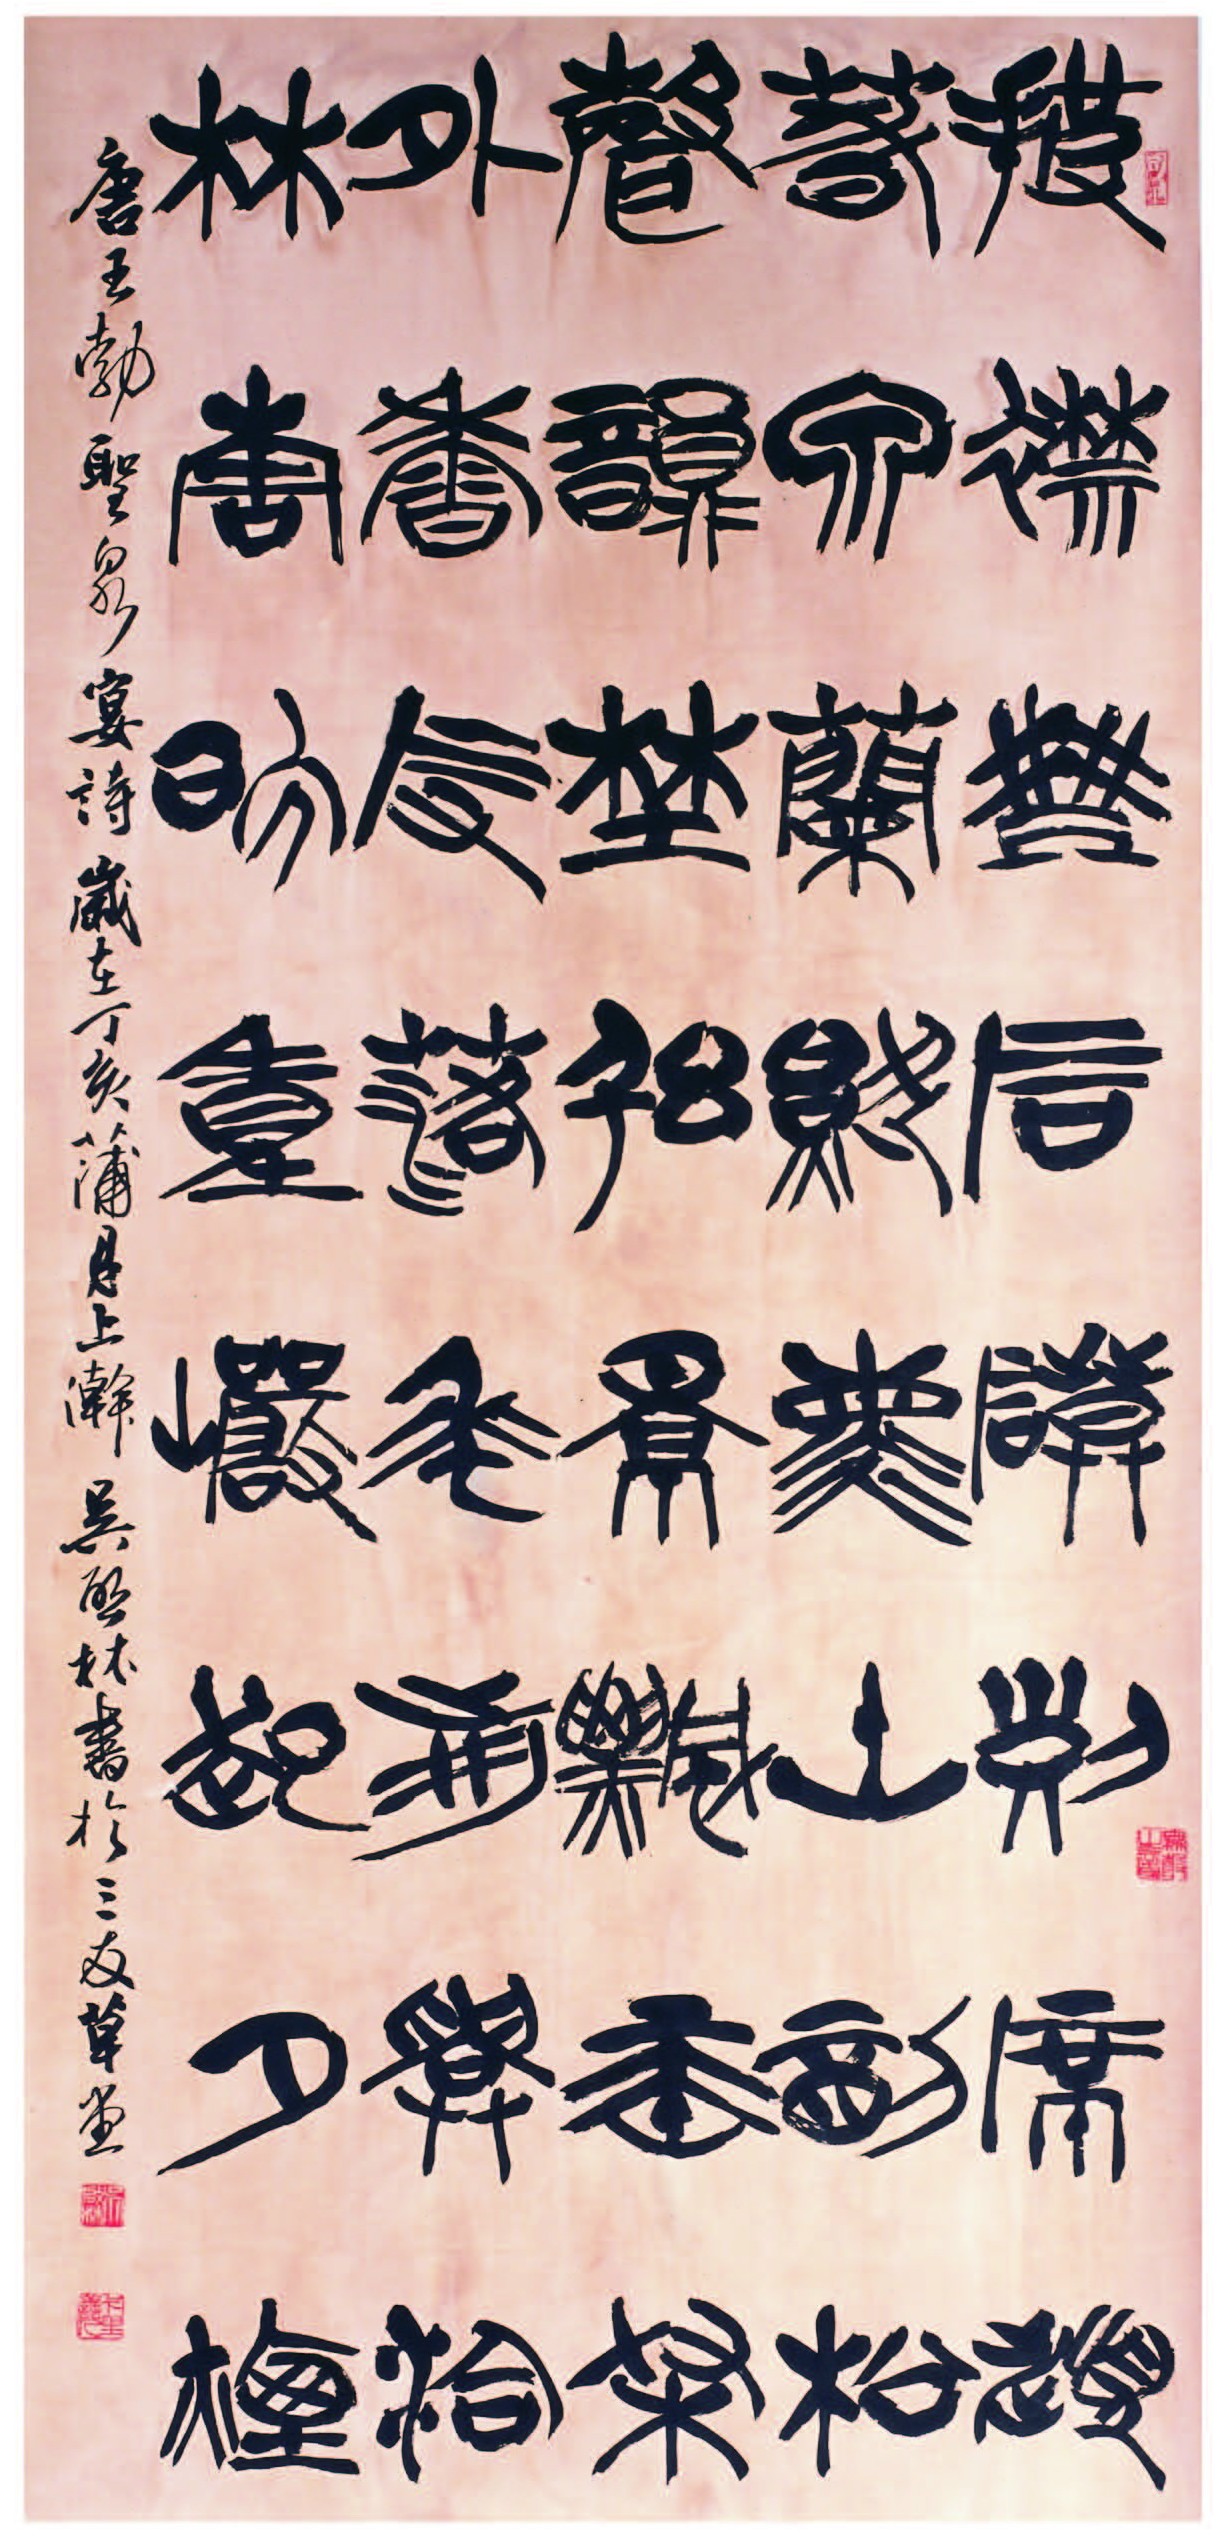 披襟乘石磴列席
春泉蘭氣熏山酌松
聲韻野弦景飄垂葉
外香度落花前興洽
林唐晚重巖起夕煙
唐王勃聖泉宴詩歲在丁亥蒲月上澣吳啟林書於三友草堂